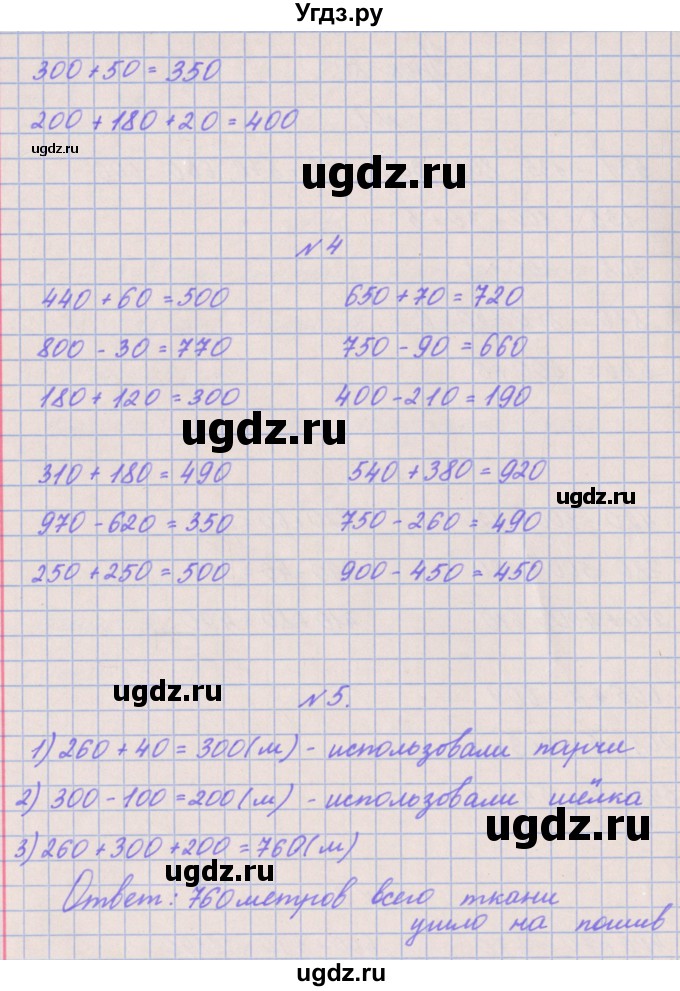 Угдз.ру
300 + 50 = 350
200 + 180 + 20 = 400
ugdz.ru
ugdz.ru
№ 4
440 + 60 = 500 650 + 70 = 720
800 - 30 = 770 750 - 90 = 660
180 + 120 = 300 400 - 210 = 190
ugdz.ru
310 + 180 = 490 540 + 380 = 920
ugdz.ru
970 - 620 = 350 750 - 260 = 490
250 + 250 = 500 900 - 450 = 450
ugdz.ru
№ 5.
1) 260 + 40 = 300 (м) - использовали парчи
2) 300 - 100 = 200 (м) - использовали шёлка
ugdz.ru
3) 260 + 300 + 200 = 760 (м)
ugdz.ru
Ответ: 760 метров всего ткани
ушло на пошив
ugdz.ru